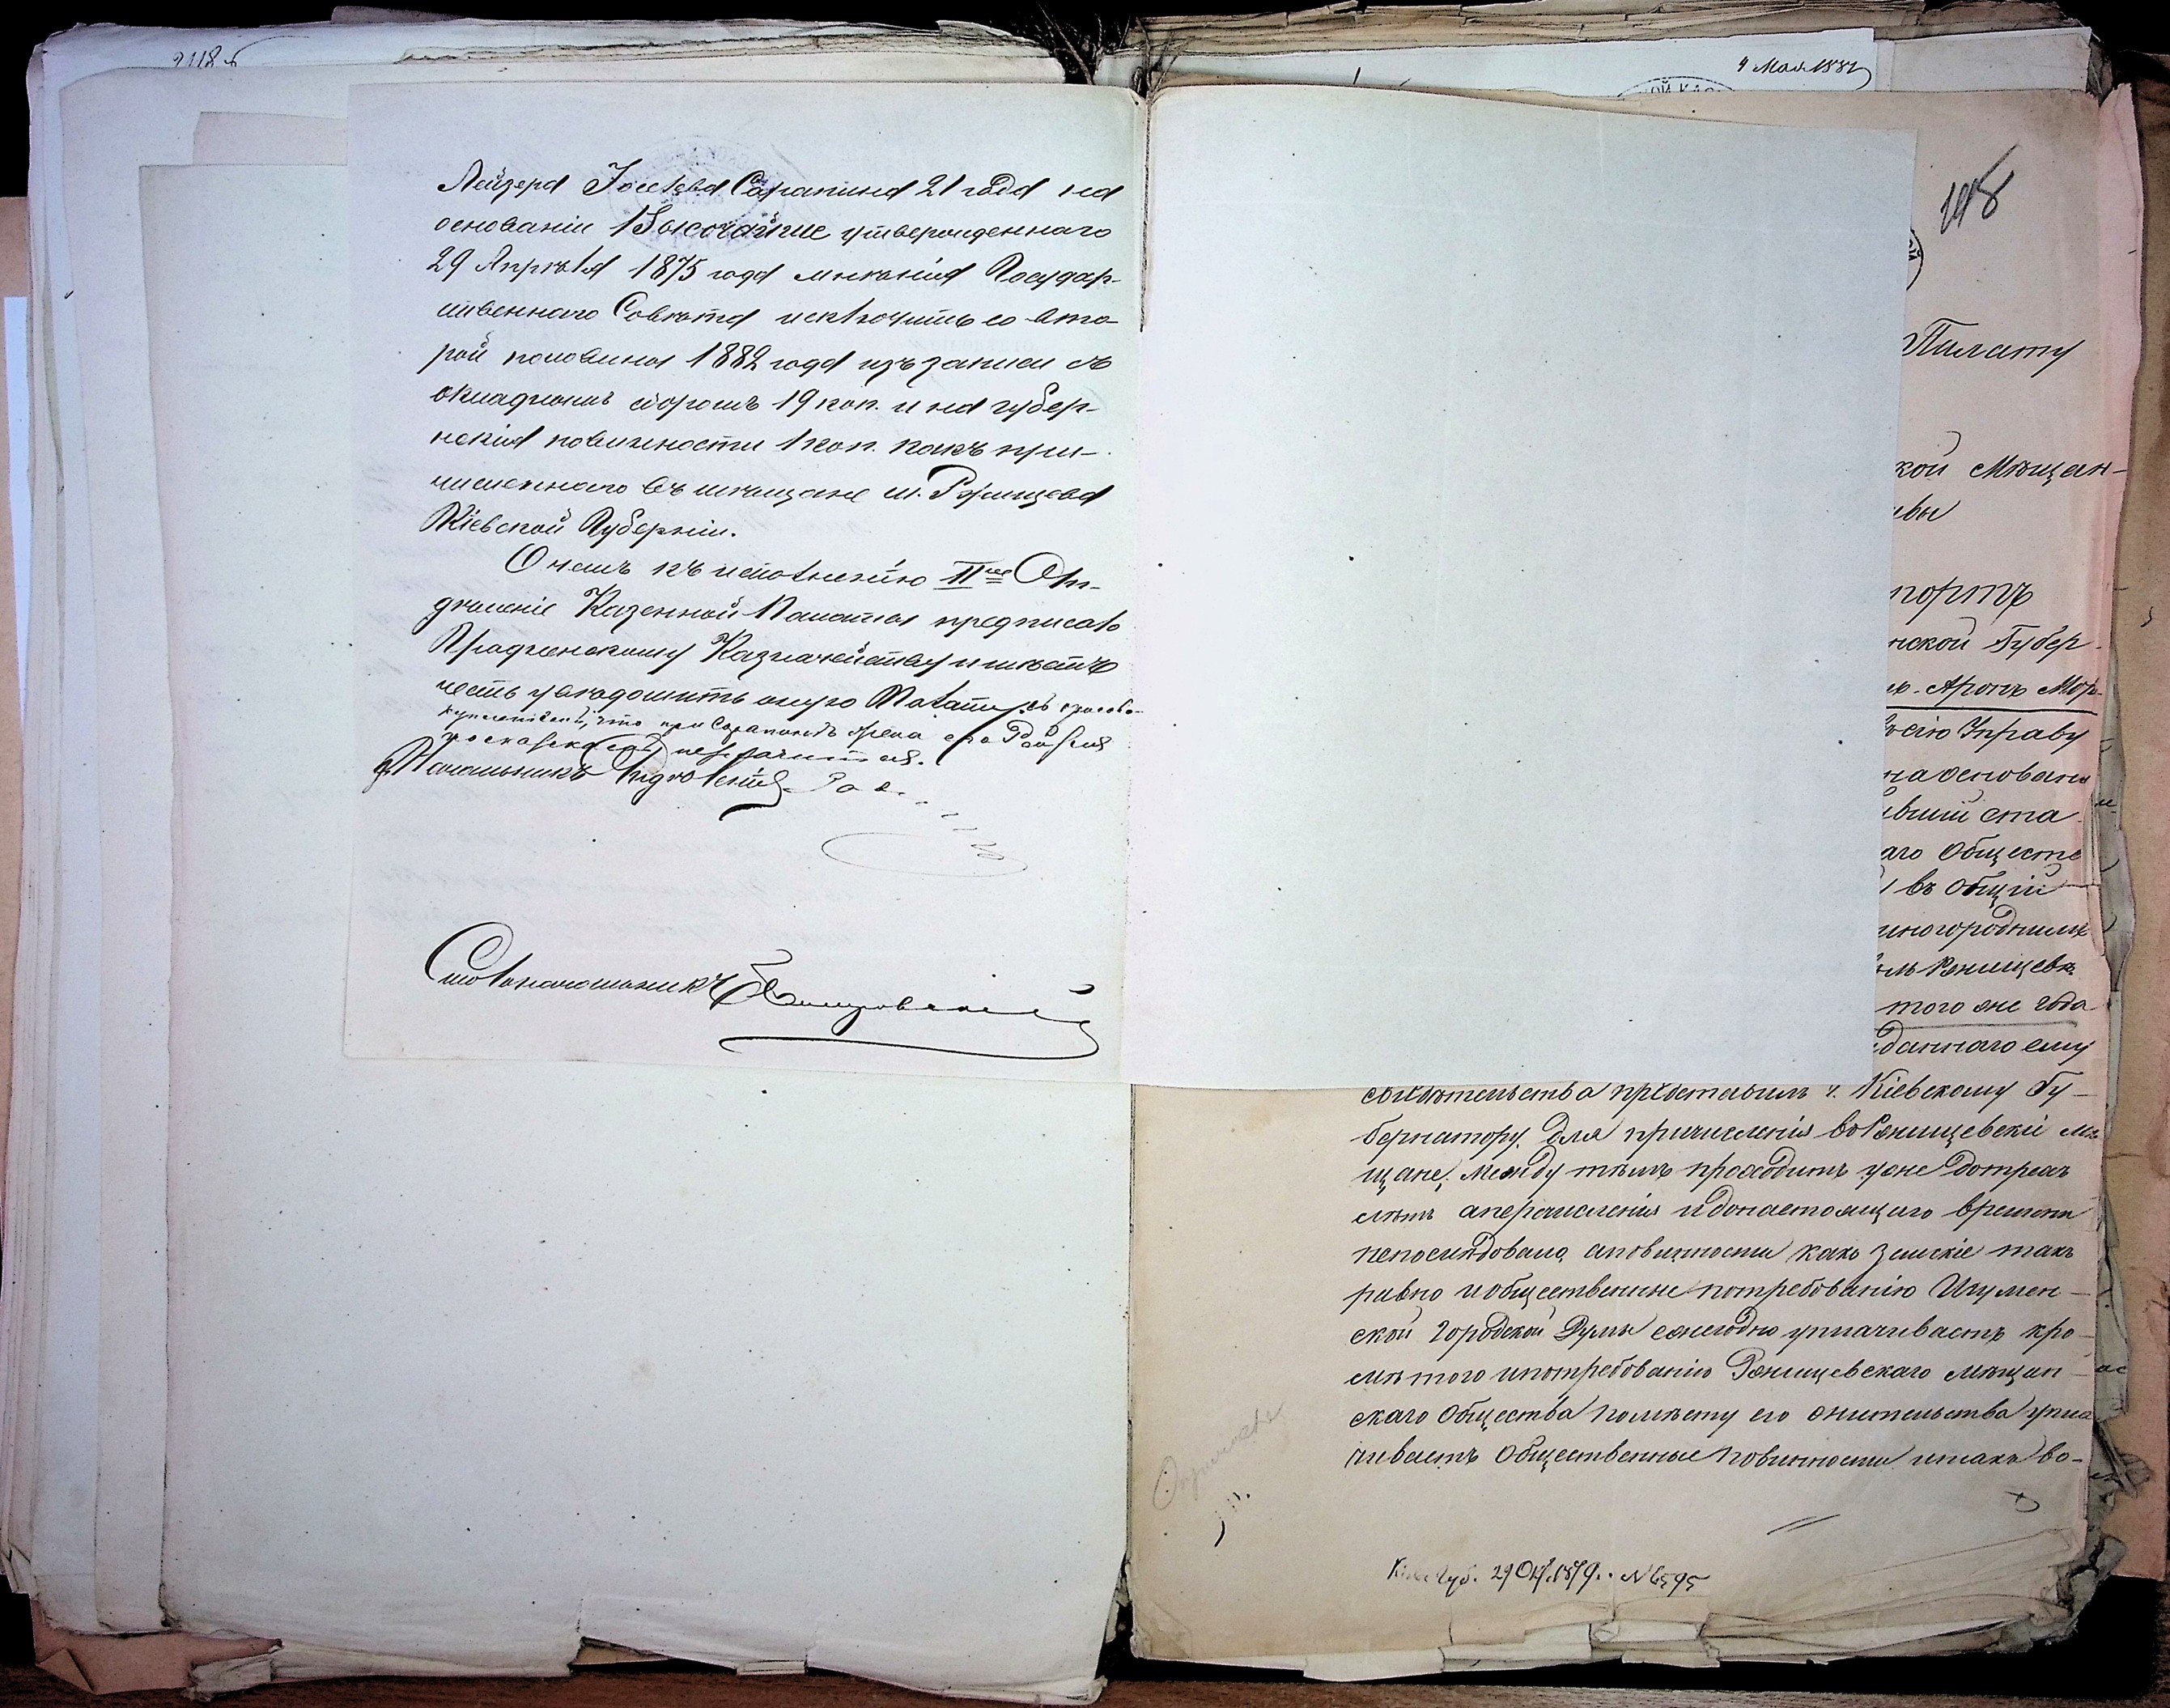 2118 б
Лейзера Іоселева Сарапина 21 года на
основаніи Высочайше утвержденнаго
29 Апрѣля 1875 года мнѣнія Государ-
ственнаго Совѣта исключить со вто-
рой половины 1882 года изъ записи съ
окладномъ сборомъ 19 коп. и на губер-
нскія повинности 1 коп. какъ при-
численнаго въ мѣщане м. Ржищева
Кіевской Губерніи.
О чемъ къ исполненію II ое От-
дѣленіе Казенной Палаты предписало
Казначейству и имѣетъ
честь увѣдомить оную Палату, съ
что при Сарапинѣ жена его
не значится.
Начальникъ Отдѣленія
Столоначальникъ
4 Мая 1882
Палату
кой Мѣщан-
портъ
нской Губер-
Аронъ Мор-
сію Управу
на основані
ивши ста
аго Обществ
въ общій
иногороднимъ
Ржищевѣ
того же года
даннаго ему
свидѣтельства представилъ г. Кіевскому Гу-
бернатору для причисленія во Ржищевскіи мѣ
щане, между тѣмъ проходитъ уже до трехъ
лѣтъ а перечисленія и до настоящаго времени
непослѣдовало, а повинности какъ земскіе такъ
равно и общественные по требованію Игумен-
ской Городской Думы ежегодно уплачиваетъ кро-
мѣ того и по требованію Ржищевскаго Мѣщан-
скаго Общества по мѣсту его жительства упла
чиваетъ Общественные повинности и такъ во-
Губ. 29 Окт. 1879. № 6595